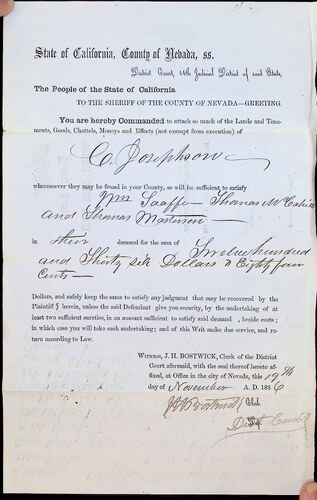 State of California, County of Nevada, ss.
District Court, 14th Judicial District of said State.
The People of the State of California
TO THE SHERIFF OF THE COUNTY OF NEVADA—GREETING.
You are hereby Commanded to attach so much of the Lands and Tene-
ments, Goods, Chattels, Moneys and Effects (not exempt from execution) of
C. Josephson
wheresoever they may be found in your County, as will be sufficient to satisfy
Wm Thomas
and Thomas
in their demand for the sum of Twelve hundred
and Thirty six Dollars & Eighty four
Cents
Dollars, and safely keep the same to satisfy any judgment that may be recovered by the
Plaintiff herein, unless the said Defendant give you security, by the undertaking of at
least two sufficient sureties, in an amount sufficient to satisfy said demand , besides costs ;
in which case you will take such undertaking; and of this Writ make due service, and re-
turn according to Law.
WITNESS, J. H. BOSTWICK, Clerk of the District
Court aforesaid, with the seal thereof hereto af-
fixed, at Office in the city of Nevada, this 19th
day of November A. D. 1856
J H Bostwick Clerk
Dist Court